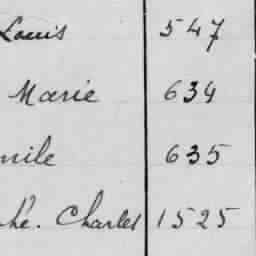 Louis 547
Marie 634
mile 635
hé. Charles 1525